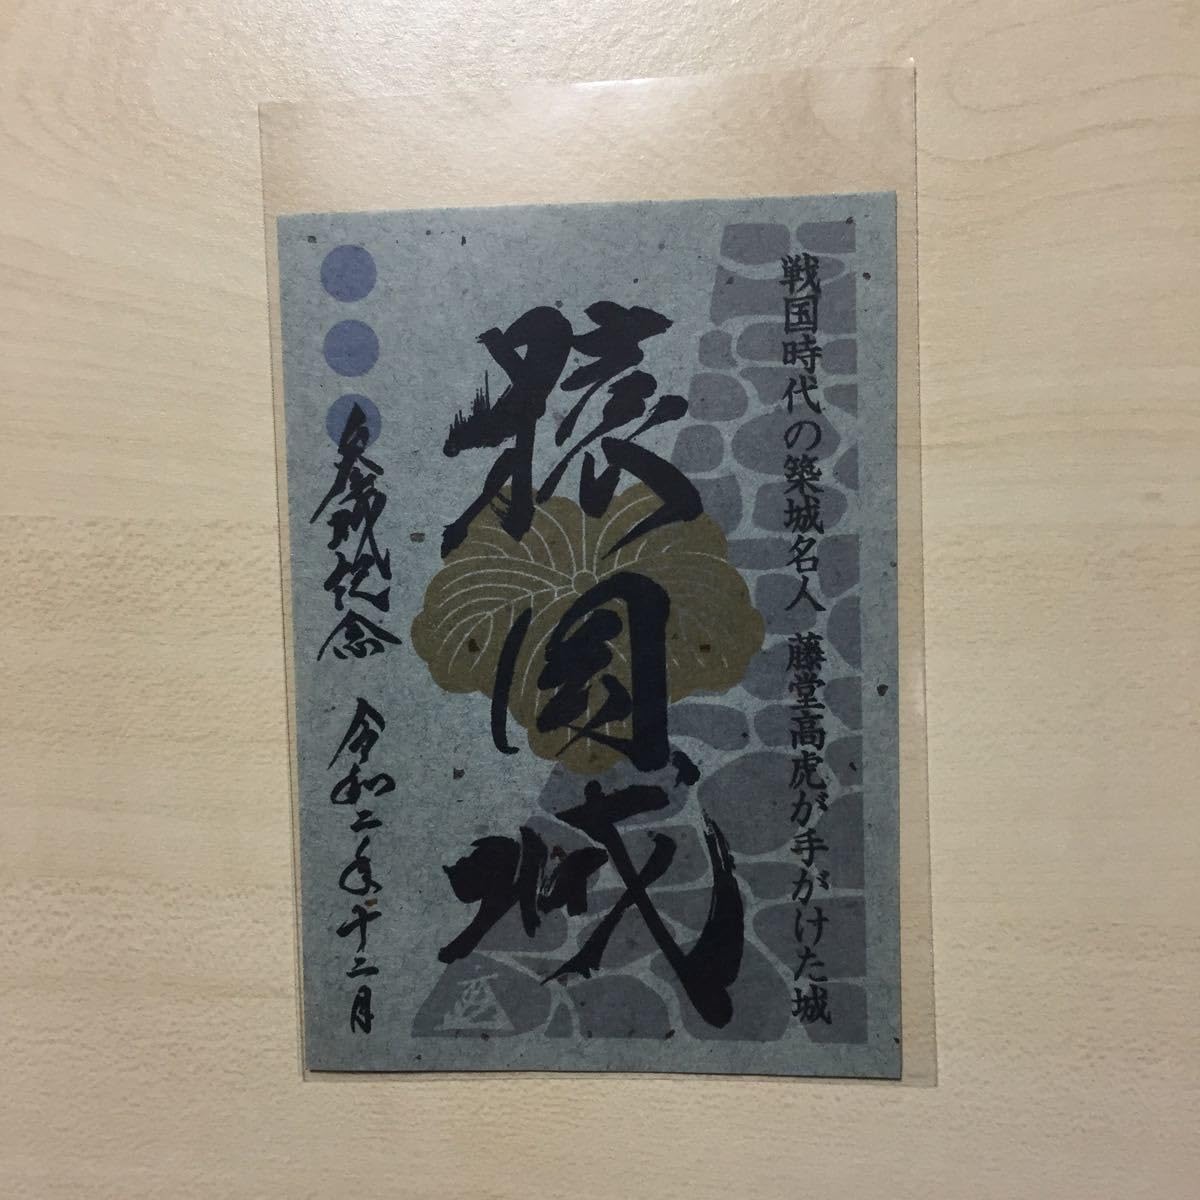 戦国時代の築城名人 藤堂高虎が手がけた城
猿岡城
登城記念 令和二年十二月